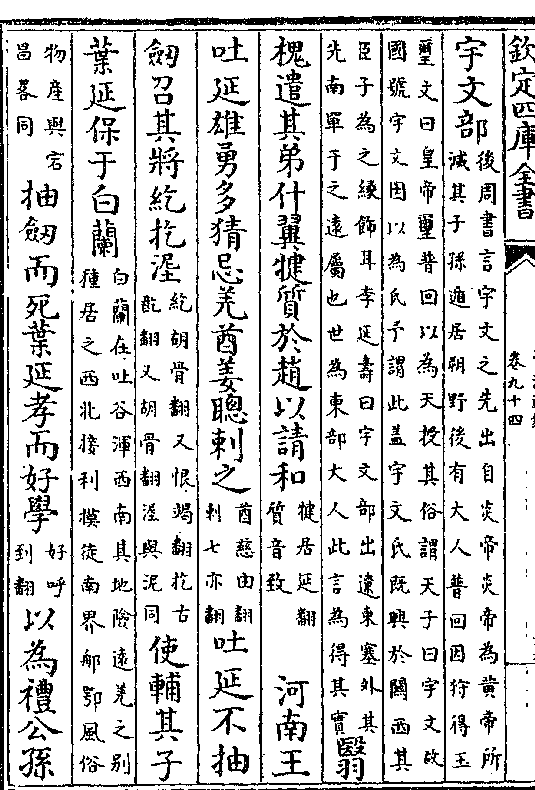 欽定四庫全書
卷九十四
宇文部
後周書言宇文之先出自炎帝炎帝為黄帝所
滅其子孫遁居朔野後有大人普回因狩得玉
璽文曰皇帝璽普回以為天授其俗謂天子曰宇文故
國號宇文因以為氏予謂此盖宇文氏既興於闗西其
臣子為之緣飾耳李延壽曰宇文部出遼東塞外其
先南單于之遠屬也世為東部大人此言為得其實
翳
槐遣其弟什翼犍質於趙以請和
犍居延翻
質音致
河南王
吐延雄勇多猜忌羌酋姜聰刺之
酋慈由翻
刺七亦翻
吐延不抽
劒召其將紇扢埿
紇胡骨翻又恨竭翻扢古
翻又胡骨翻埿與泥同
使輔其子
葉延保于白蘭
白蘭在吐谷渾西南其地險遠羌之别
種居之西北接利摸徒南界郍鄂風俗
物産與宕
昌畧同
抽劒而死葉延孝而好學
好呼
到翻
以為禮公孫